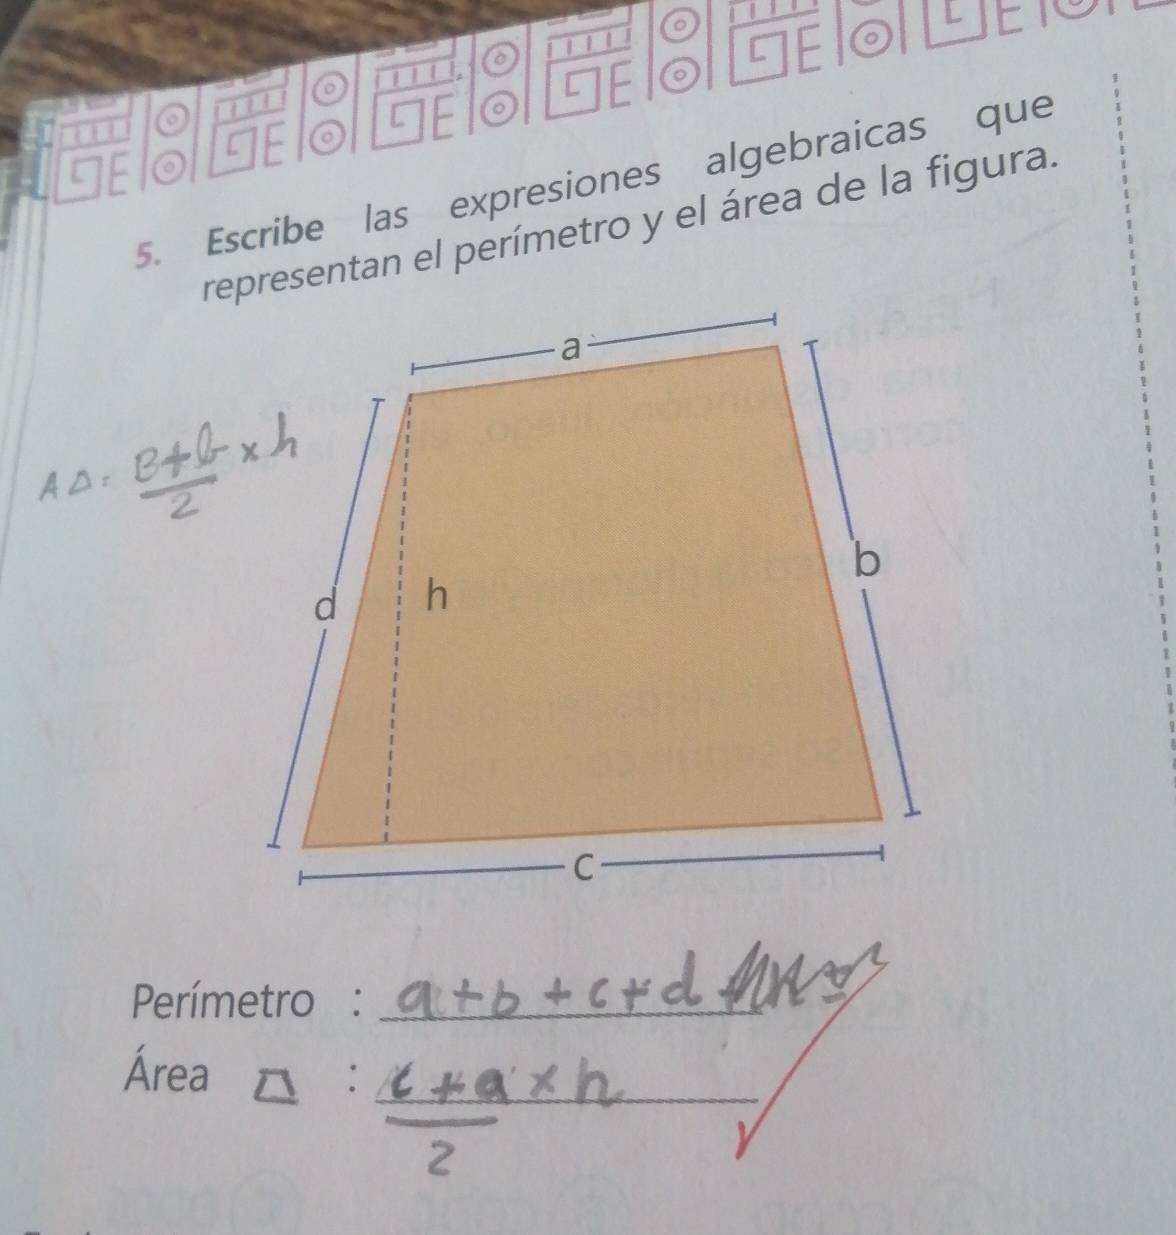 5. Escribe las expresiones algebraicas que
representan el perímetro y el área de la figura.
a
A△: B+b/2 x h
b
d
h
c
Perímetro : a+b+c+d
Área : c+a/2 x h